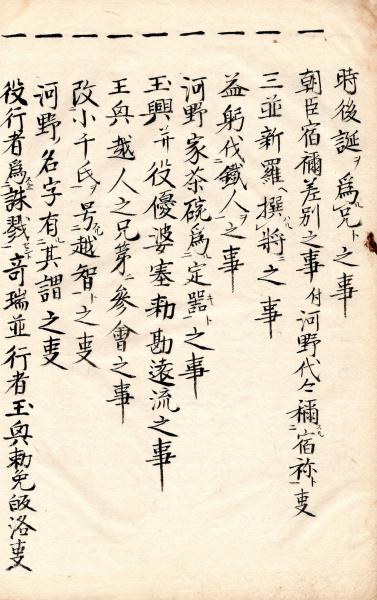 一時後誕ヲ為ルレ兄ト之事
一朝臣宿禰差別之事付河野代々禰宿祢ト事
一三並新羅ヘ撰ハルレ将ニ之事
一益躬伐二鉄人ヲ一之事
一河野家茶碗為ルニ定器ト一之事
一玉興并役優婆塞勅勘遠流之事
一玉興越人之兄弟ニ参會之事
一改小千氏ヲ号ルニ越智ト一之叓
一河野ノ名字有ルニ其謂一之叓
一役行者為誅戮奇瑞並行者玉興勅免皈洛叓